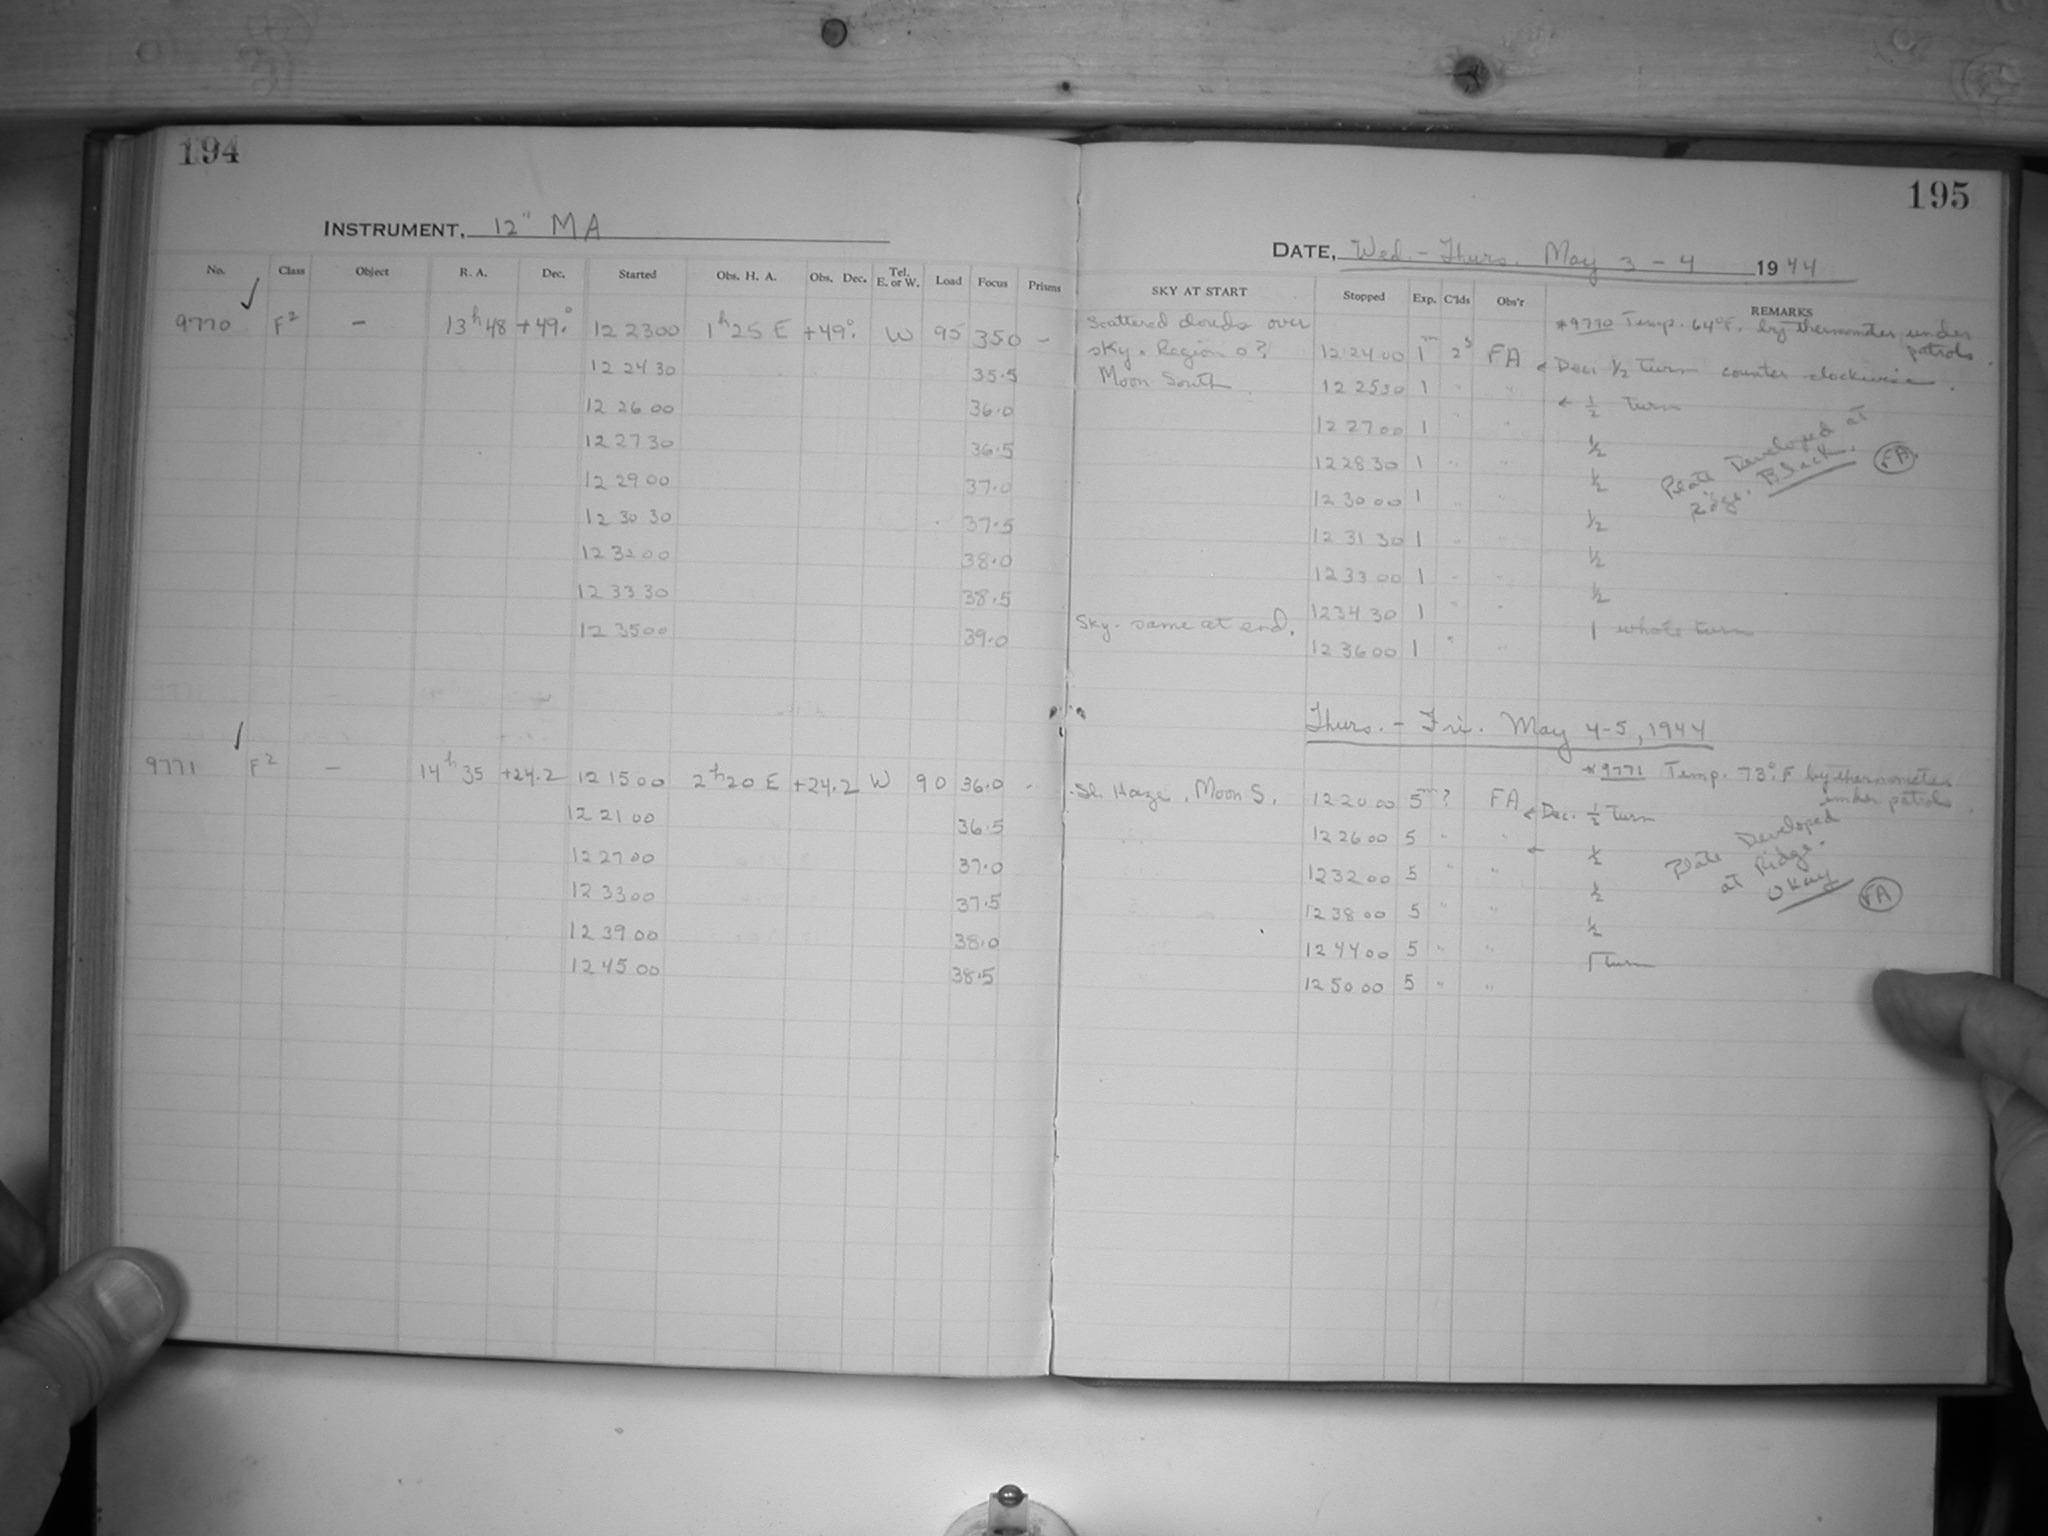 194
INSTRUMENT, 12" MA
No. Class Object R. A. Dec. Started Obs. H. A. Obs. Dec. Tel. E. or W. Load Focus Prisms
9770 F2 - 13h 48 +49.° 12 23 00 1h 25 E +49.° W 95 35.0 -
12 24 30 35.5
12 26 00 36.0
12 27 30 36.5
12 29 00 37.0
12 30 30 37.5
12 32 00 38.0
12 33 30 38.5
12 35 00 39.0
9771 F2 - 14h 35 +24.2 12 15 00 2h 20 E +24.2 W 90 36.0 -
12 21 00 36.5
12 27 00 37.0
12 33 00 37.5
12 39 00 38.0
12 45 00 38.5
195
DATE, Wed. - Thurs. May 3 - 4 1944
SKY AT START Stopped Exp. C'lds Obs'r REMARKS
Scattered clouds over *9770 Temp. 64°F. by thermometer under
patrols.
sky. Region o? 12 24 00 1m FA ← Dec. 1/2 turn counter clockwise.
Moon South 12 25 30 1 " " ← 1/2 turn
12 27 00 1 " 1/2
12 28 30 1 " " 1/2
12 30 00 1 " " 1/2
12 31 30 1 " " 1/2
12 33 00 1 " " 1/2
Sky - same at end. 12 34 30 1 " " 1 whole turn
12 36 00 1 " "
Plate Developed at
Ridge. Black. FA
Thurs. - Fri. May 4-5, 1944
*9771 Temp. 73°F by thermometer
under patrols.
Sl. Haze, Moon S. 12 20 00 5m ? FA ← Dec. 1/2 turn
12 26 00 5 " " ← 1/2
12 32 00 5 " " 1/2
12 38 00 5 " " 1/2
12 44 00 5 " " 1 turn
12 50 00 5 " "
Plate Developed
at Ridge.
Okay FA